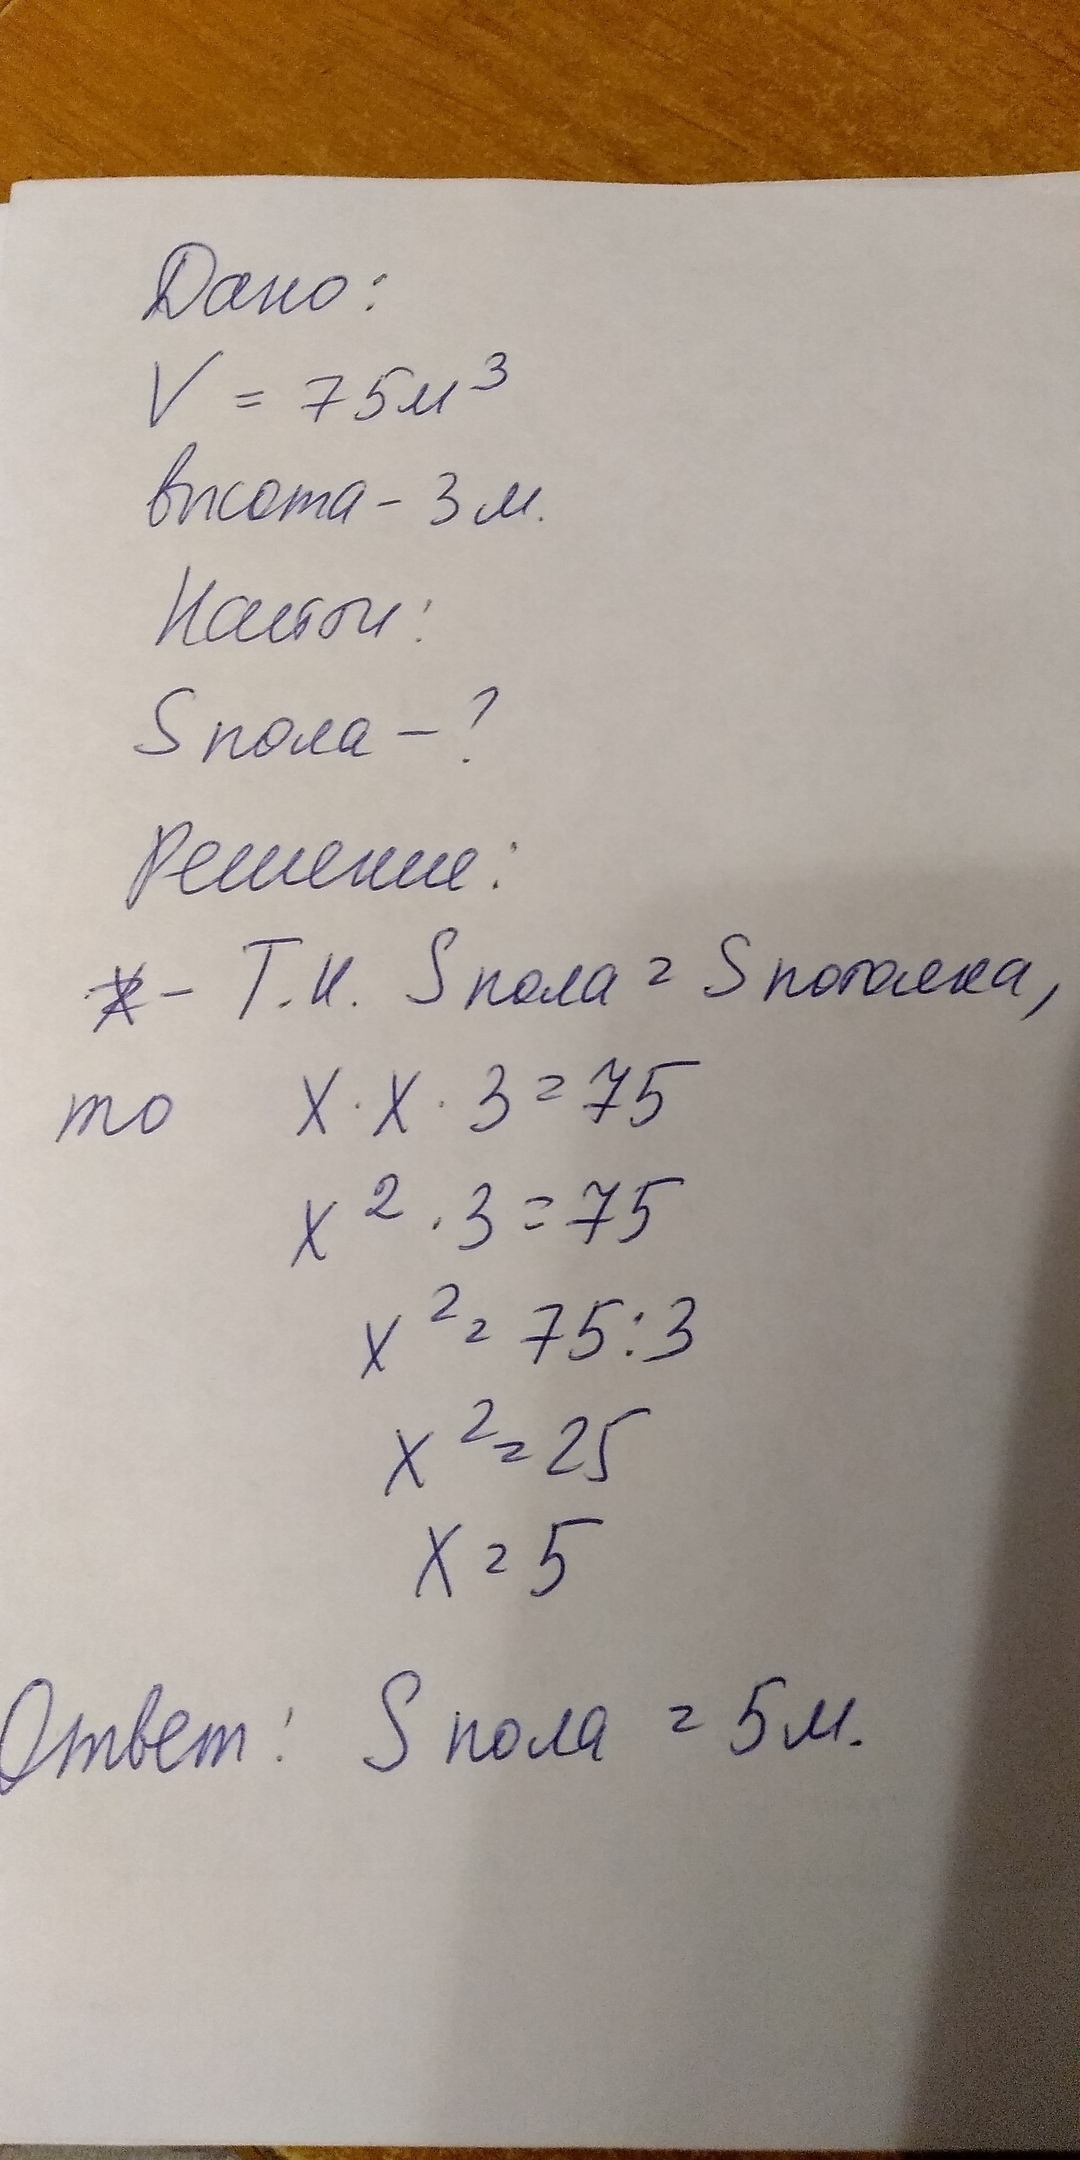 Дано:
V = 75м³
высота - 3 м.
Найти:
S пола - ?
Решение:
- Т.к. S пола = S потолка,
то x · x · 3 = 75
x² · 3 = 75
x² = 75 : 3
x² = 25
x = 5
Ответ: S пола = 5 м.